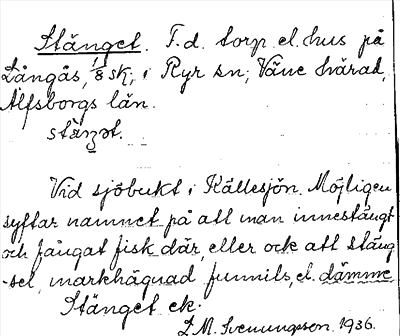 Stänget. F.d. torp el. hus på
Långås, 1/8 sk, i Ryr sn; Väne härad,
Älfsborgs län.
stäŋət.
Vid sjöbukt i Källesjön. Möjligen
syftar namnet på att man innestängt
och fångat fisk där, eller ock att stäng
-sel, markhägnad funnits, el. dämme
Stänget ek.
L.M. Svenungsson. 1936.